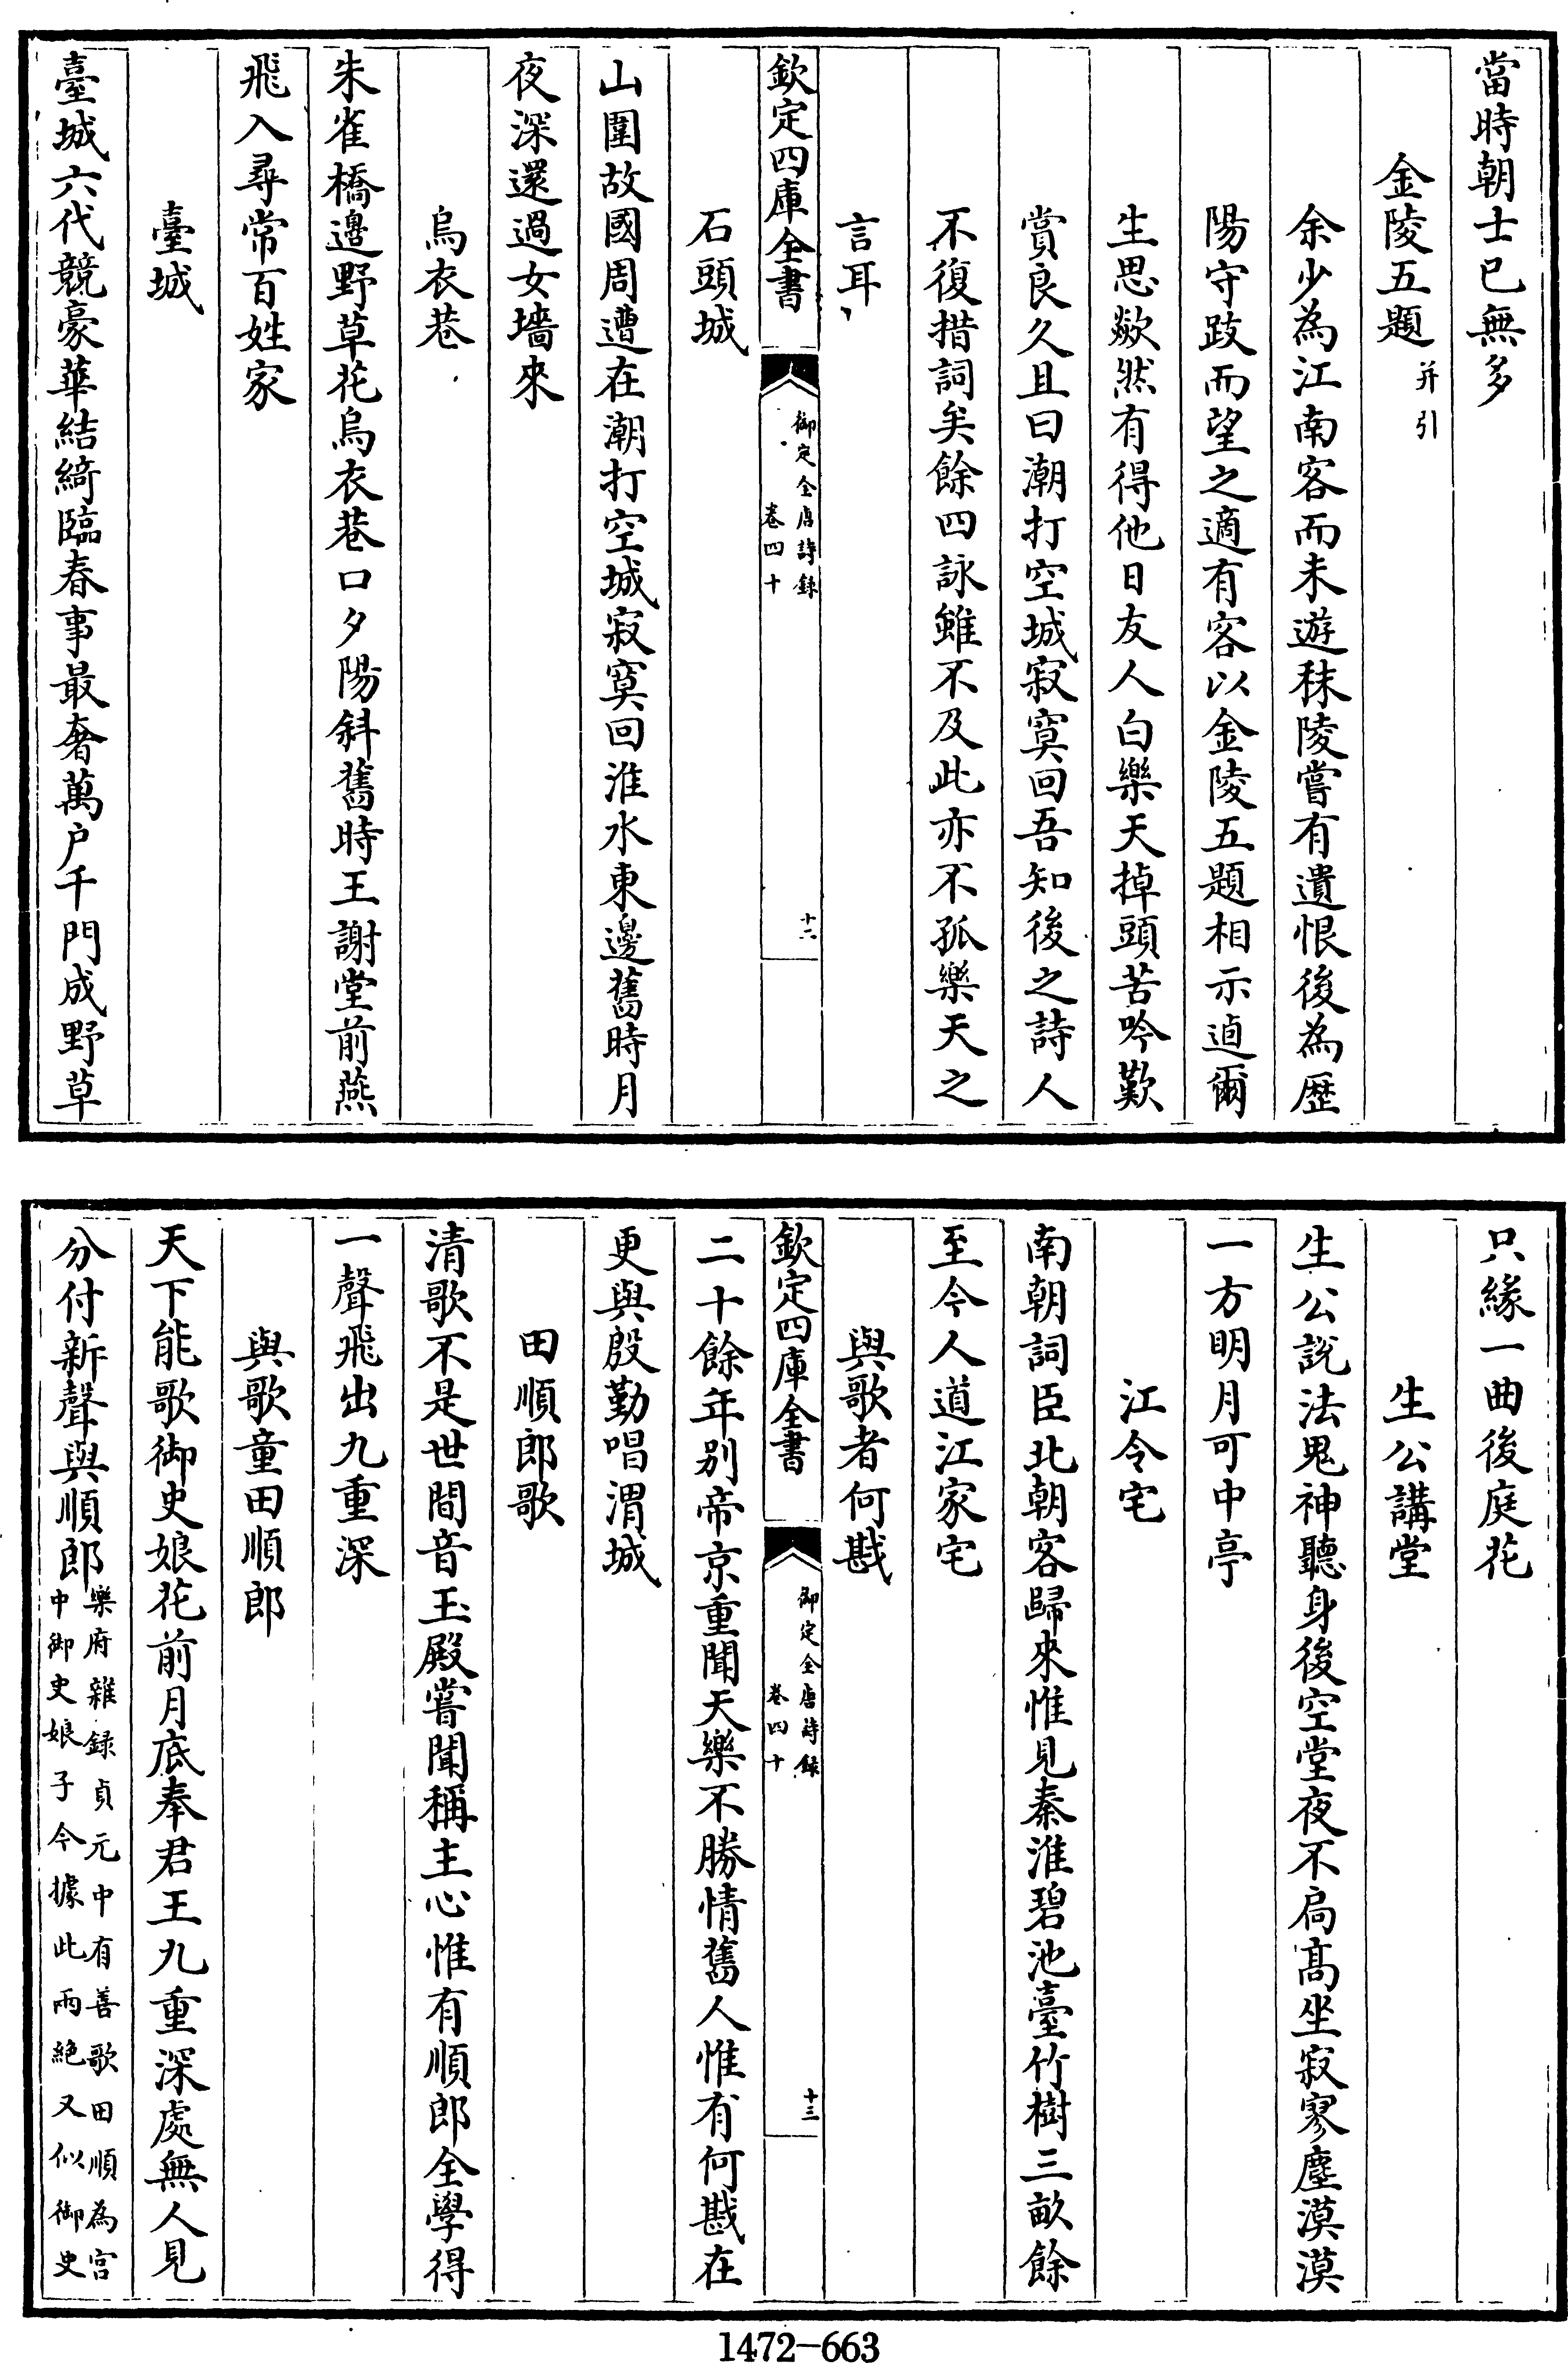 當時朝士已無多
金陵五題并引
余少為江南客而未遊秣陵嘗有遺恨後為歴
陽守跂而望之適有客以金陵五題相示逌爾
生思歘然有得他日友人白樂天掉頭苦吟歎
賞良久且曰潮打空城寂寞回吾知後之詩人
不復措詞矣餘四詠雖不及此亦不孤樂天之
言耳
欽定四庫全書
御定全唐詩録
卷四十
十二
石頭城
山圍故國周遭在潮打空城寂寞回淮水東邊舊時月
夜深還過女墻來
烏衣巷
朱雀橋邊野草花烏衣巷口夕陽斜舊時王謝堂前燕
飛入尋常百姓家
臺城
臺城六代競豪華結綺臨春事最奢萬户千門成野草
只緣一曲後庭花
生公講堂
生公說法鬼神聽身後空堂夜不扃髙坐寂寥塵漠漠
一方明月可中亭
江令宅
南朝詞臣北朝客歸來惟見秦淮碧池臺竹樹三畝餘
至今人道江家宅
與歌者何戡
欽定四庫全書
御定全唐詩録
卷四十
十三
二十餘年别帝京重聞天樂不勝情舊人惟有何戡在
更與殷勤唱渭城
田順郎歌
清歌不是世間音玉殿嘗聞稱主心惟有順郎全學得
一聲飛出九重深
與歌童田順郎
天下能歌御史娘花前月底奉君王九重深處無人見
分付新聲與順郎樂府雜録貞元中有善歌田順為宫
中御史娘子今據此兩絶又似御史
1472-663